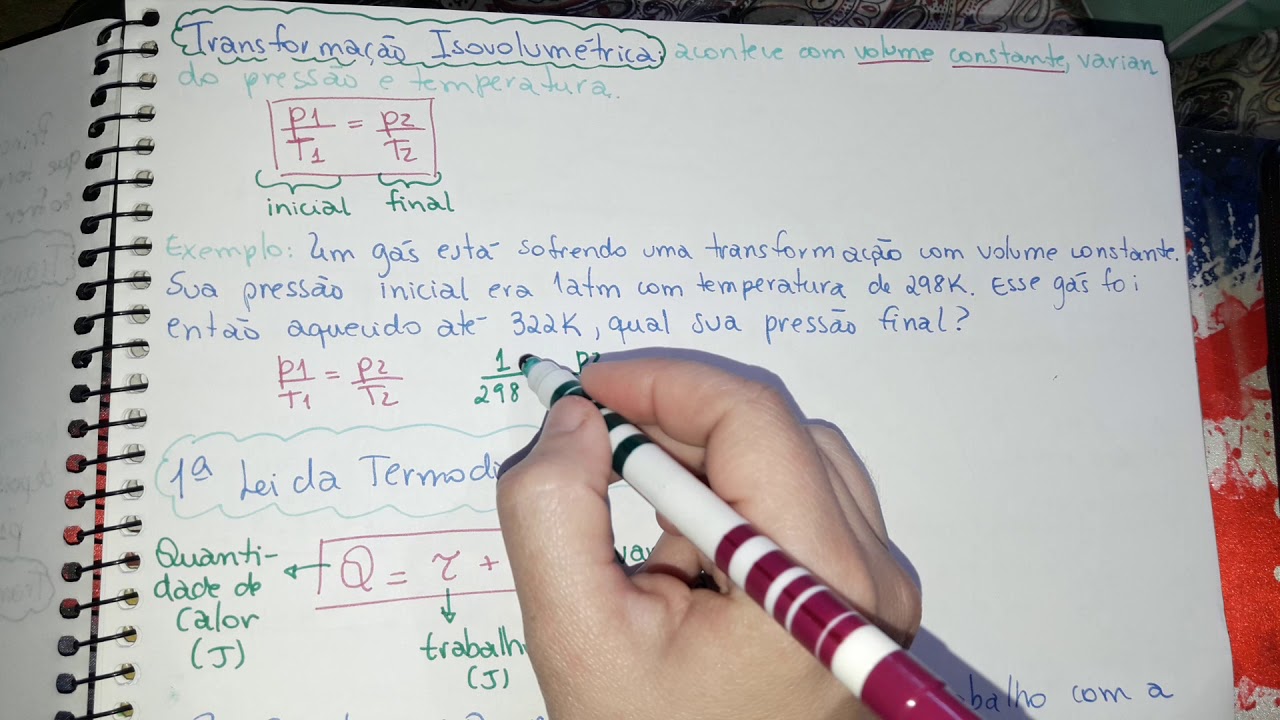 Transformação Isovolumétrica: acontece com volume constante, varian
do pressão e temperatura.
p1 = p2
T1 T2
inicial final
Exemplo: Um gás está sofrendo uma transformação com volume constante.
Sua pressão inicial era 1atm com temperatura de 298K. Esse gás foi
então aquecido até 322K, qual sua pressão final?
p1 = p2 1 p2
T1 T2 298
1ª Lei da
Quanti-
dade de
Calor
(J)
Q = τ +
(J)
com a